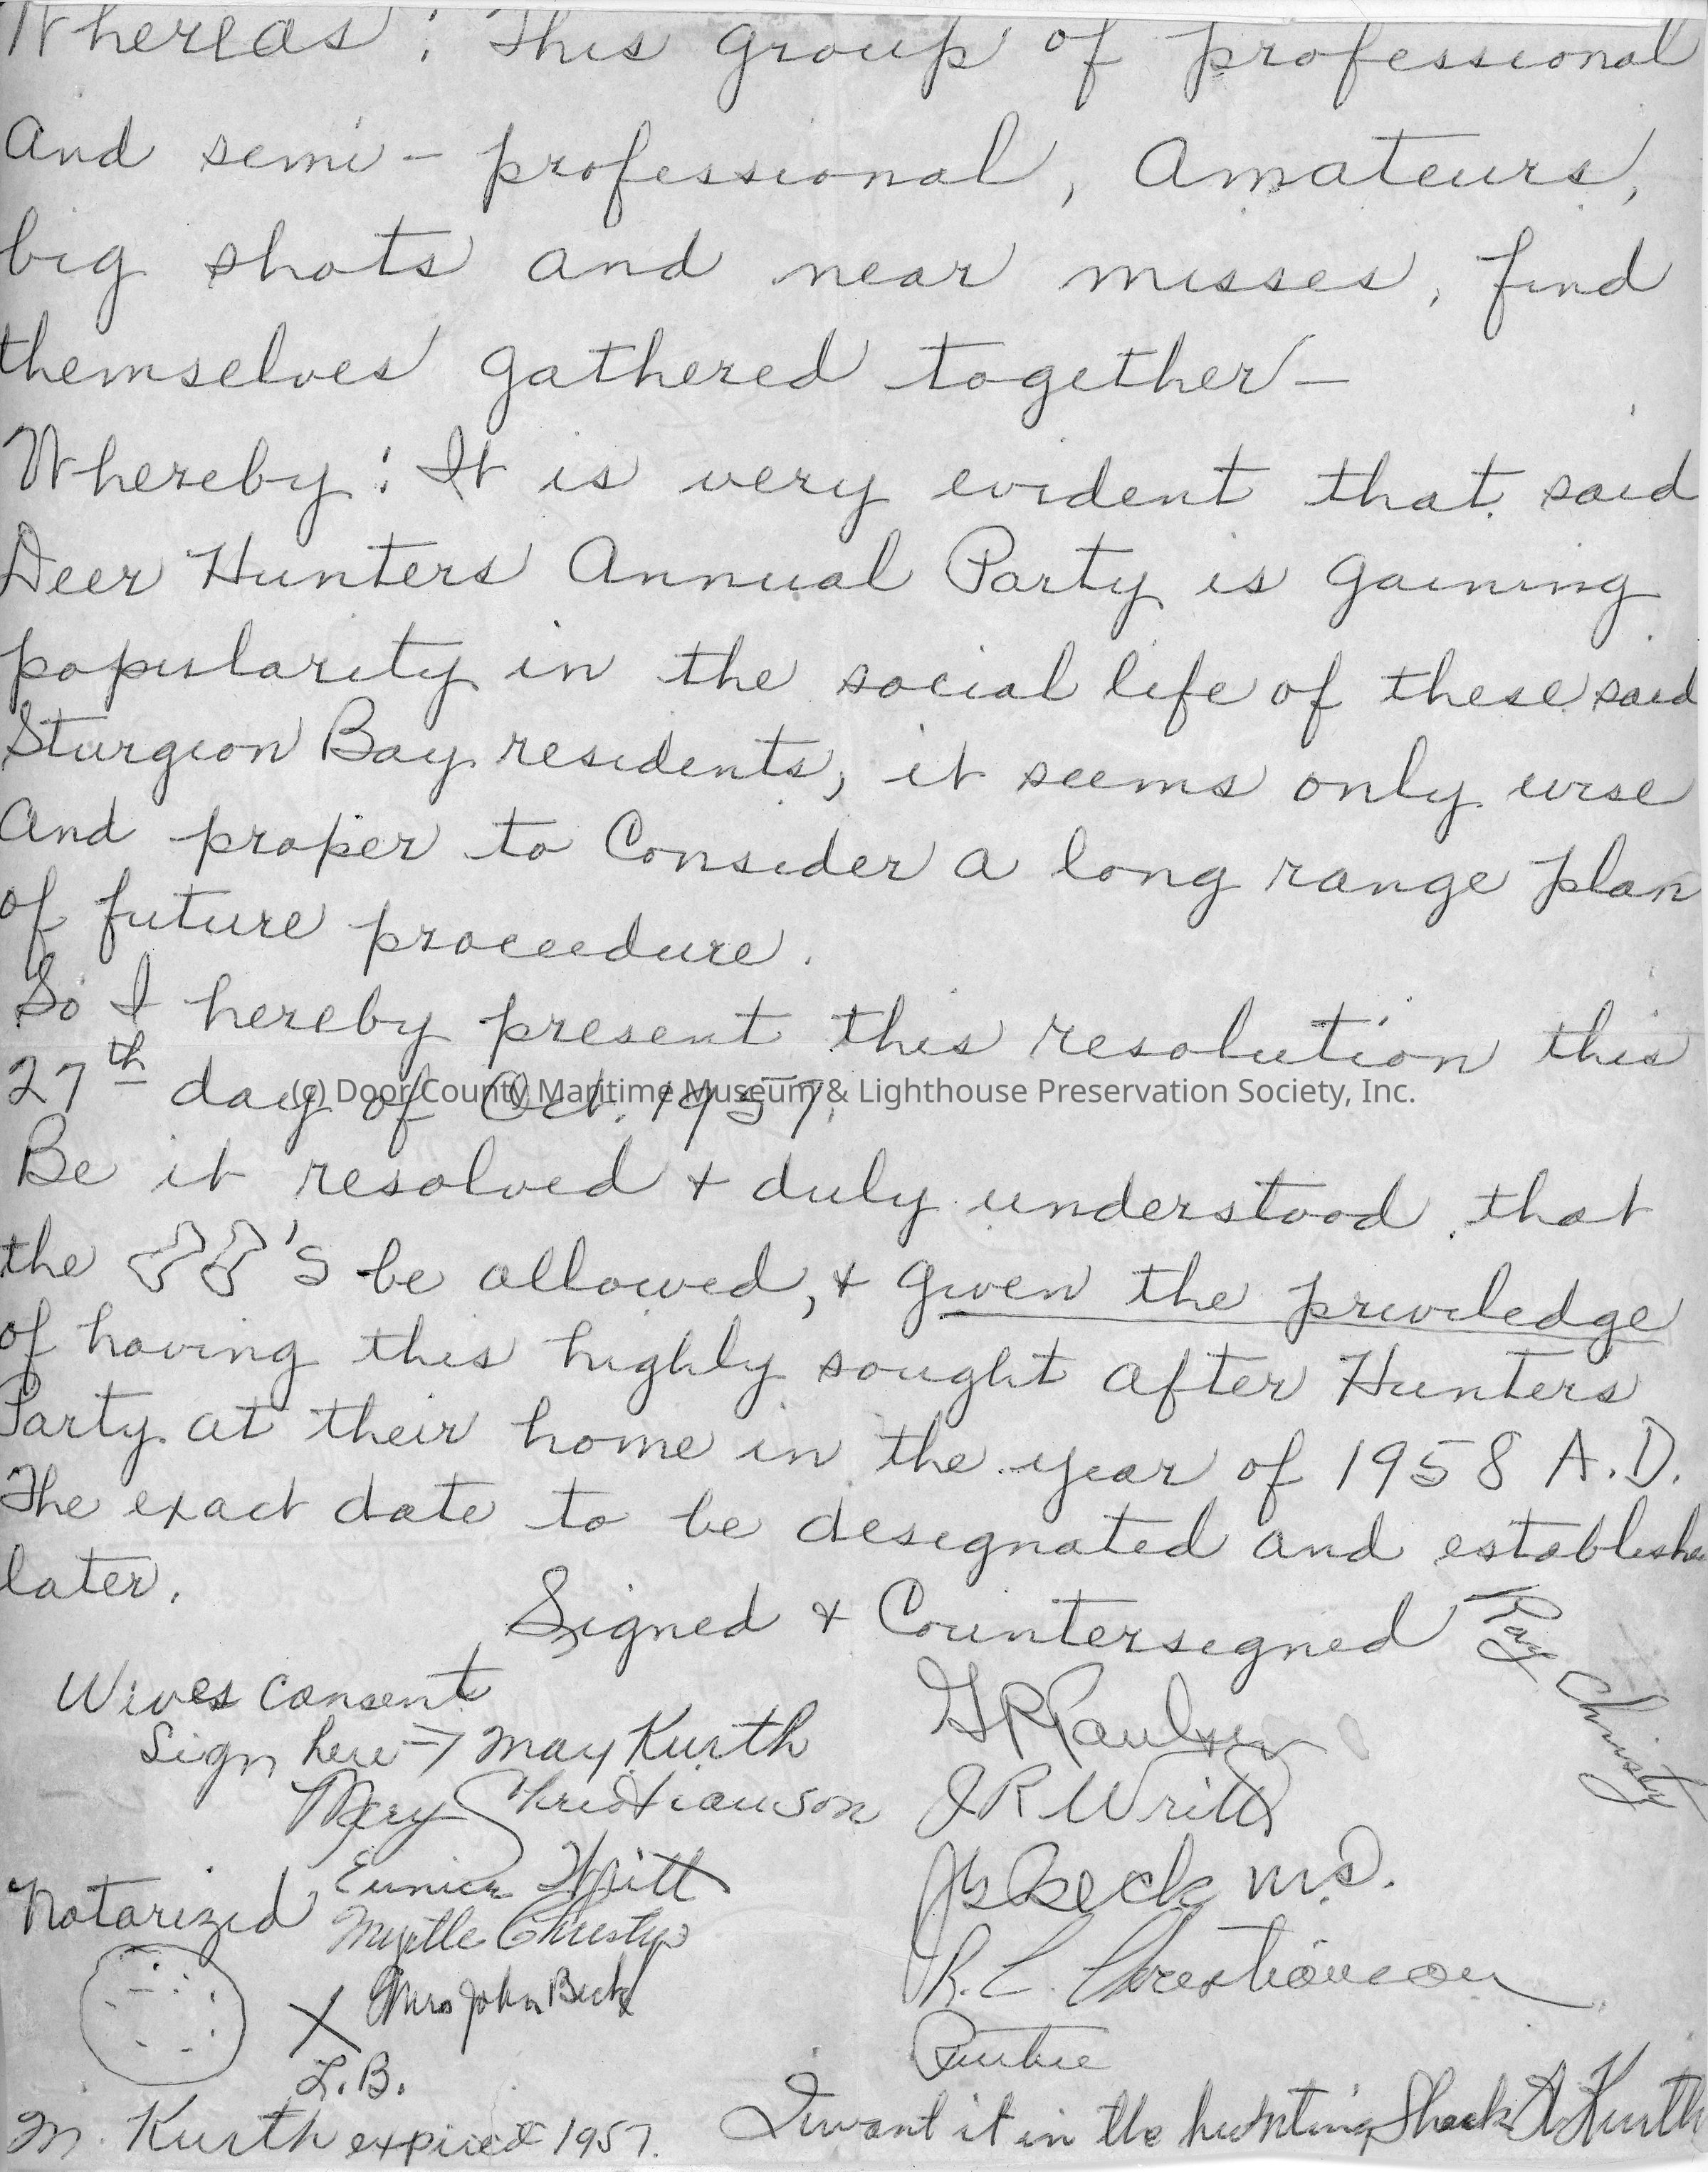 Whereas: This group of professional
And semi- professional, Amateurs,
big shots and near misses, find
themselves gathered together-
Whereby: It is very evident that said
Deer Hunters Annual Party is gaining
popularity in the social life of these said
Sturgeon Bay residents, it seems only wise
And proper to Consider a long range plan
of future proceedure.
So I hereby present this resolution this
27th day of Oct. 1957.
(c) Door County Maritime Museum & Lighthouse Preservation Society, Inc.
Be it resolved + duly understood that
the 's be allowed, + given the priviledge
of having this highly sought after Hunters
Party at their home in the year of 1958 A.D.
The exact date to be designated and establishe
later.
Signed + Countersigned
Ray Christy
Wives consent
Sign here → May Kurth
G R Paulsen
Mery Christianson
J R Writt
Eunice Writt
J G Beck M.D.
Notarized
Myrtle Christy
R. C. Christianson
X Mrs John Beck
L.B.
M. Kurth expired 1957.
I want it in the hunting Shack A Kurth